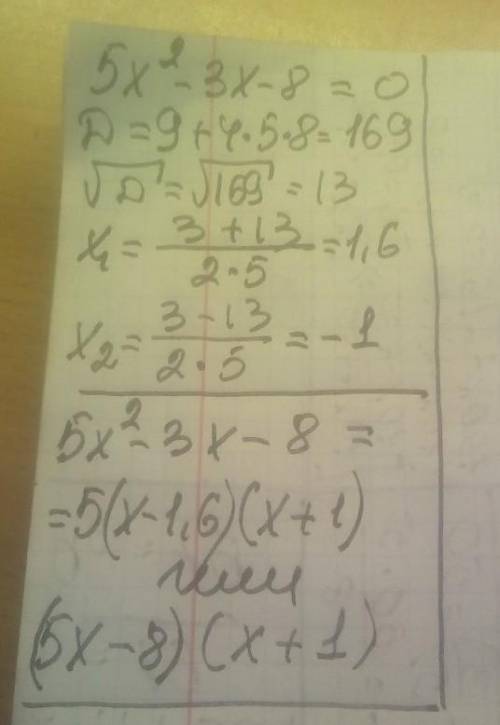 5x² - 3x - 8 = 0
D = 9 + 4·5·8 = 169
√D = √169 = 13
x₁ = (3 + 13)/(2·5) = 1,6
x₂ = (3 - 13)/(2·5) = -1
5x² - 3x - 8 =
= 5(x - 1,6)(x + 1)
или
(5x - 8)(x + 1)